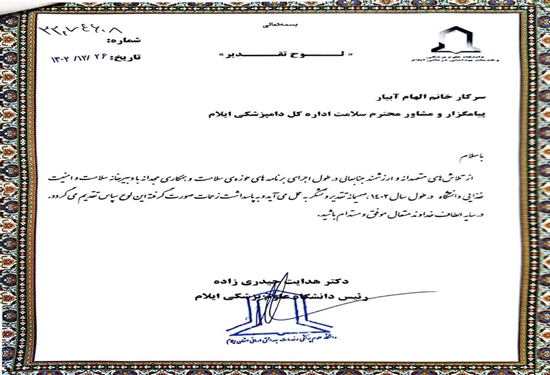 بسمه‌تعالی
شماره:
دانشگاه علوم پزشکی
و خدمات بهداشتی درمانی ایلام
تاریخ: ۱۴۰۲/۱۲/۲۶
« لـــوح تقـــدیر»
سرکار خانم الهام آبیار
پیامگزار و مشاور محترم سلامت اداره کل دامپزشکی ایلام
باسلام
از تلاش‌های متعهدانه و ارزشمند جنابعالی در طول اجرای برنامه‌های حوزه‌ی سلامت و همکاری مجدانه با دبیرخانه سلامت و امنیت
غذایی دانشگاه در طول سال ۱۴۰۲، صمیمانه تقدیر و تشکر به عمل می‌آید و به پاسداشت زحمات صورت گرفته این لوح سپاس تقدیم می‌گردد.
در سایه الطاف خداوند متعال موفق و مستدام باشید.
دکتر هدایت حیدری زاده
رئیس دانشگاه علوم پزشکی ایلام